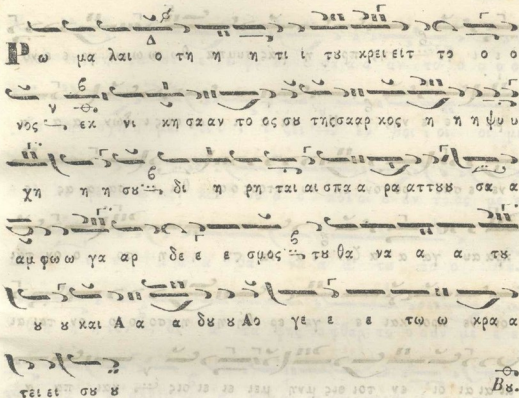 Ρω μα λαι ο τη η η τι ι τȣ κρει ειτ το ο ο
νος εκ νι κη σα αν το ος σȣ της σα αρ κος η η η ψυ υ
χη η η σȣ δι η ρη ται αι σπα α ρα αττȣȣ σα α
αμ φω ω γα αρ δε ε ε σμος τȣ θα να α α τȣ
ȣ ȣ και Α α α δȣ ȣ Λο γε ε ε τω ω κρα α
τει ει σȣ ȣ Βȣ